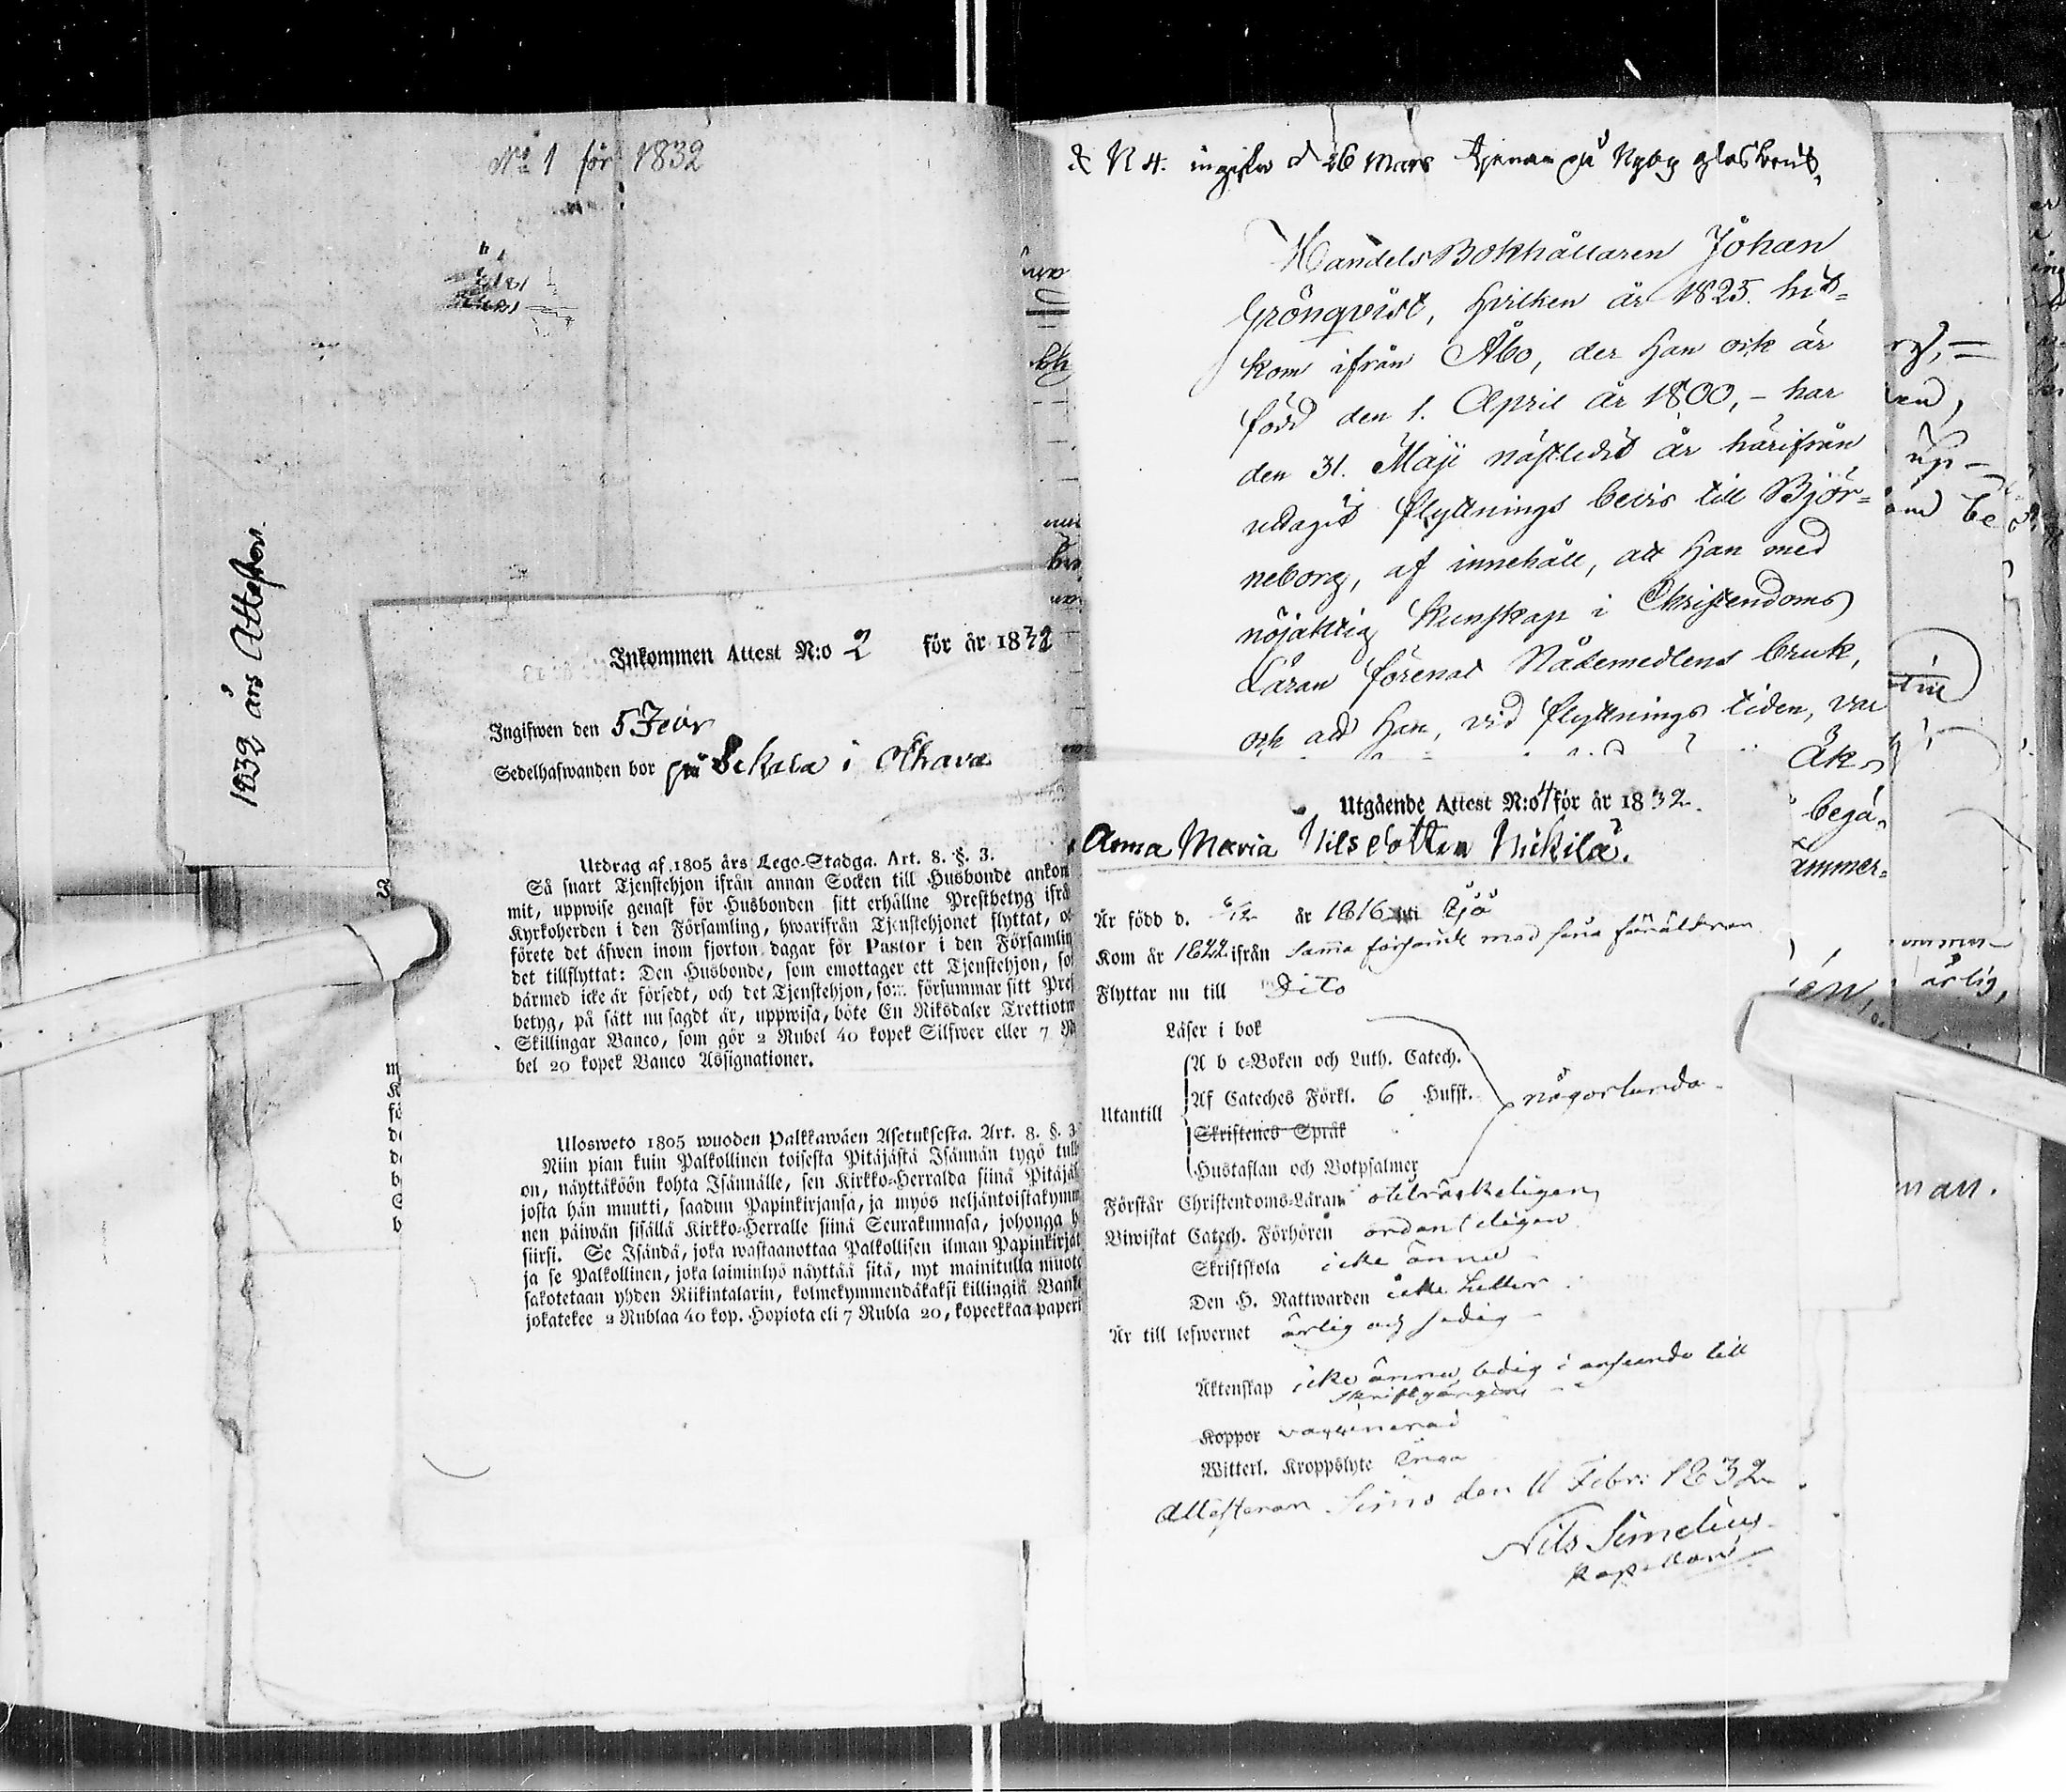 No 1 för 1832
1832 års Attester.
Inkommen Attest N:o 2 för år 1832
Ingifwen den 5 Febr
Sedelhafwanden bor på Sekala i Olhava
Utdrag af 1805 års Lego-Stadga. Art. 8. §. 3.
Så snart Tjenstehjon ifrån annan Socken till Husbonde ankom
mit, uppwise genast för Husbonden sitt erhållne Prestbetyg ifrå
Kyrkoherden i den Församling, hwarifrån Tjenstehjonet flyttat, o
förete det äfwen inom fjorton dagar för Pastor i den Församlin
det tillflyttat: Den Husbonde, som emottager ett Tjenstehjon, so
därmed icke är försedt, och det Tjenstehjon, som försummar sitt Pres
betyg, på sätt nu sagdt är, uppwisa, böte En Riksdaler Trettiotw
Skillingar Banco, som gör 2 Rubel 40 kopek Silfwer eller 7 R
bel 20 kopek Banco Assignationer.
Ulosweto 1805 wuoden Palkkawäen Asetuksesta. Art. 8. §. 3
Niin pian kuin Palkollinen toisesta Pitäjästä Isännän tygö tull
on, näyttäköön kohta Isännälle, sen Kirkko-Herralda siinä Pitäjäs
josta hän muutti, saadun Papinkirjansa, ja myös neljäntoistakymm
nen päiwän sisällä Kirkko-Herralle siinä Seurakunnasa, johonga h
siirsi. Se Isändä, joka wastaanottaa Palkollisen ilman Papinkirjat
ja se Palkollinen, joka laiminlyö näyttää sitä, nyt mainitulla muoto
sakotetaan yhden Riikintalarin, kolmekymmendäkaksi killingiä Bank
jokatekee 2 Rublaa 40 kop. Hopiota eli 7 Rubla 20, kopeekkaa paperi
N 4. ingifw d 26 Mars tjenar på Nyby glasbruk,
HandelsBokhållaren Johan
Grönqvist, hvilken år 1825. hit-
kom ifrån Åbo, der han ock är
född den 1. April år 1800, - har
den 31. Maji nästledit år härifrån
uttagit flyttnings bevis till Björ-
neborg, af innehåll, att han med
nöjaktig kunskap i Christendoms
Läran förenat Nådemedlens bruk,
ock att han, vid flyttnings tiden, var
Utgående Attest N:o 4 för år 1832.
Anna Maria Nilsdotter Nickilä.
Är född d. 6/12 år 1816 uti Ijo
Kom år 1822 ifrån samma församl med sina föräldrar
Flyttar nu till Dito
Läser i bok
A b c-Boken och Luth. Catech.
Utantill Af Cateches Förkl. 6 Hufst. någorlunda
Skriftenes Språk
Hustaflan och Botpsalmer
Förstår Christendoms-Läran otilräckeligen
Biwistat Catech. Förhören ordenteligen
Skriftskola icke ännu
Den H. Nattwarden icke heller
Är till lefwernet ärlig och sedig
Äktenskap icke ännu ledig i anseende till
skriftgången
Koppor vaccinerad
Witterl. Kroppslyte inga
Attesterar Simo den 11 Febr: 1832
Nils Simelius
Kapellan